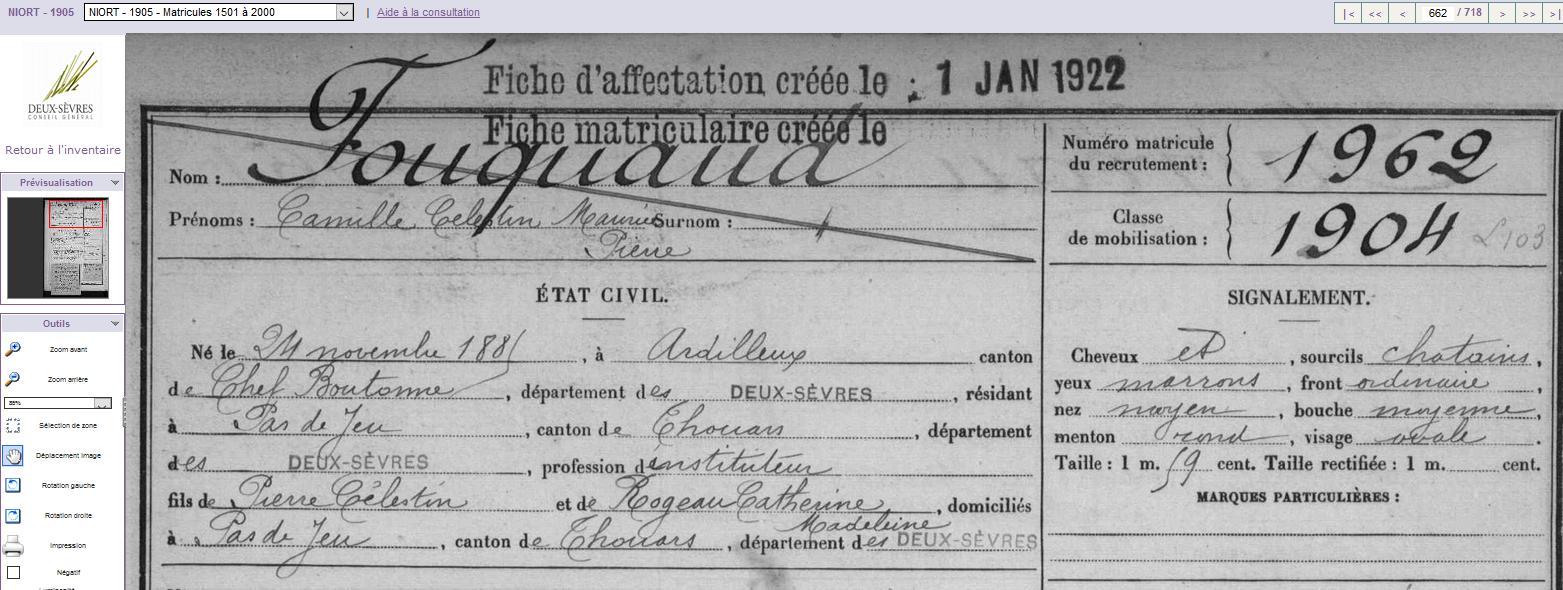 NIORT - 1905 NIORT - 1905 - Matricules 1501 à 2000 | Aide à la consultation |< << < 662 / 718 > >> >|
DEUX-SÈVRES
CONSEIL GÉNÉRAL
Retour à l'inventaire
Prévisualisation
Outils
Zoom avant
Zoom arrière
Sélection de zone
Déplacement image
Rotation gauche
Rotation droite
Impression
Négatif
Fiche d'affectation créée le : 1 JAN 1922
Fiche matriculaire créée le
Nom : Fouquaud
Prénoms : Camille Célestin Maurice Surnom :
Pierre
Numéro matricule
du recrutement : 1962
Classe
de mobilisation : 1904
ÉTAT CIVIL.
Né le 24 novembre 188 , à Ardilleux canton
de Chef Boutonne , département des DEUX-SÈVRES , résidant
à Pas de Jeu , canton de Thouars , département
des DEUX-SÈVRES , profession d'instituteur
fils de Pierre Célestin et de Rogeau Catherine , domiciliés
Madeleine
à Pas de Jeu , canton de Thouars , département des DEUX-SÈVRES
SIGNALEMENT.
Cheveux et , sourcils chatains ,
yeux marrons , front ordinaire ,
nez moyen , bouche moyenne ,
menton rond , visage ovale .
Taille : 1 m. 59 cent. Taille rectifiée : 1 m. cent.
MARQUES PARTICULIÈRES :